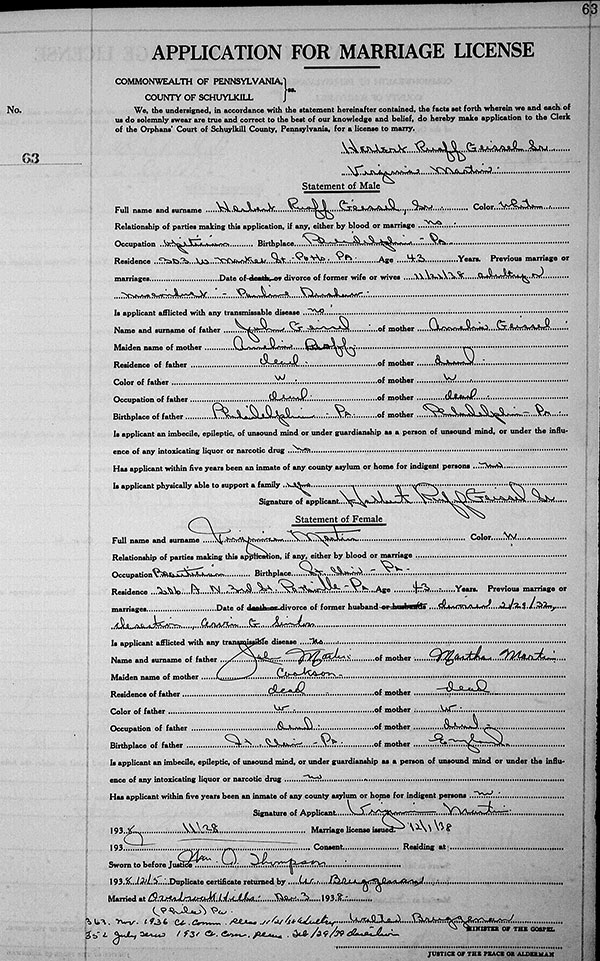 63
APPLICATION FOR MARRIAGE LICENSE
COMMONWEALTH OF PENNSYLVANIA,
COUNTY OF SCHUYLKILL } ss.
No.
63
We, the undersigned, in accordance with the statement hereinafter contained, the facts set forth wherein we and each of
us do solemnly swear are true and correct to the best of our knowledge and belief, do hereby make application to the Clerk
of the Orphans' Court of Schuylkill County, Pennsylvania, for a license to marry.
Herbert Ruoff Geissel Sr
Virginia Martin
Statement of Male
Full name and surname Herbert Ruoff Geissel, Sr Color white
Relationship of parties making this application, if any, either by blood or marriage no
Occupation Birthplace Philadelphia - Pa
Residence W Market St Potts. Pa Age 43 Years. Previous marriage or
marriages Date of death, or divorce of former wife or wives 11/21/28 adultery
Is applicant afflicted with any transmissable disease no
Name and surname of father John Geissel of mother Amelia Geissel
Maiden name of mother Amelia Ruoff
Residence of father dead of mother dead
Color of father W of mother W
Occupation of father dead of mother dead
Birthplace of father Philadelphia Pa of mother Philadelphia - Pa
Is applicant an imbecile, epileptic, of unsound mind or under guardianship as a person of unsound mind, or under the influ-
ence of any intoxicating liquor or narcotic drug no
Has applicant within five years been an inmate of any county asylum or home for indigent persons no
Is applicant physically able to support a family yes
Signature of applicant Herbert Ruoff Geissel Sr
Statement of Female
Full name and surname Virginia Martin Color W
Relationship of parties making this application, if any, either by blood or marriage
Occupation Birthplace St Clair - Pa.
Residence 206 A N 2nd St Pottsville - Pa Age 43 Years. Previous marriage or
marriages Date of death or divorce of former husband or husbands divorced
desertion,
Is applicant afflicted with any transmissible disease no
Name and surname of father Martin of mother Martha Martin
Maiden name of mother Cookson
Residence of father dead of mother dead
Color of father W of mother W.
Occupation of father dead of mother dead
Birthplace of father St Clair - Pa of mother England
Is applicant an imbecile, epileptic, of unsound mind, or under guardianship as a person of unsound mind or under the influ-
ence of any intoxicating liquor or narcotic drug no
Has applicant within five years been an inmate of any county asylum or home for indigent persons no
Signature of Applicant Virginia Martin
193 8 11/28 Marriage license issued 12/1/38
193 Consent Residing at
Sworn to before Justice Wm. Thompson
193 8 12/5 Duplicate certificate returned by
Married at Dec 3 193 8
(Phila) Pa
Nov. 1936 Ct. Comm. Pleas
July 1931 Ct. Com. Pleas desertion
MINISTER OF THE GOSPEL
JUSTICE OF THE PEACE OR ALDERMAN